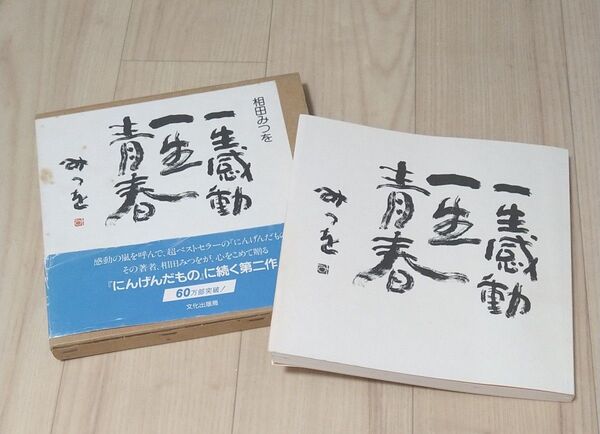 相田みつを
一生感動
一生
青春
みつを
感動の嵐を呼んで、超ベストセラーの『にんげんだもの
その著者、相田みつをが、心をこめて贈る
『にんげんだもの』に続く第二作
60万部突破!
文化出版局
一生感動
一生
青春
みつを